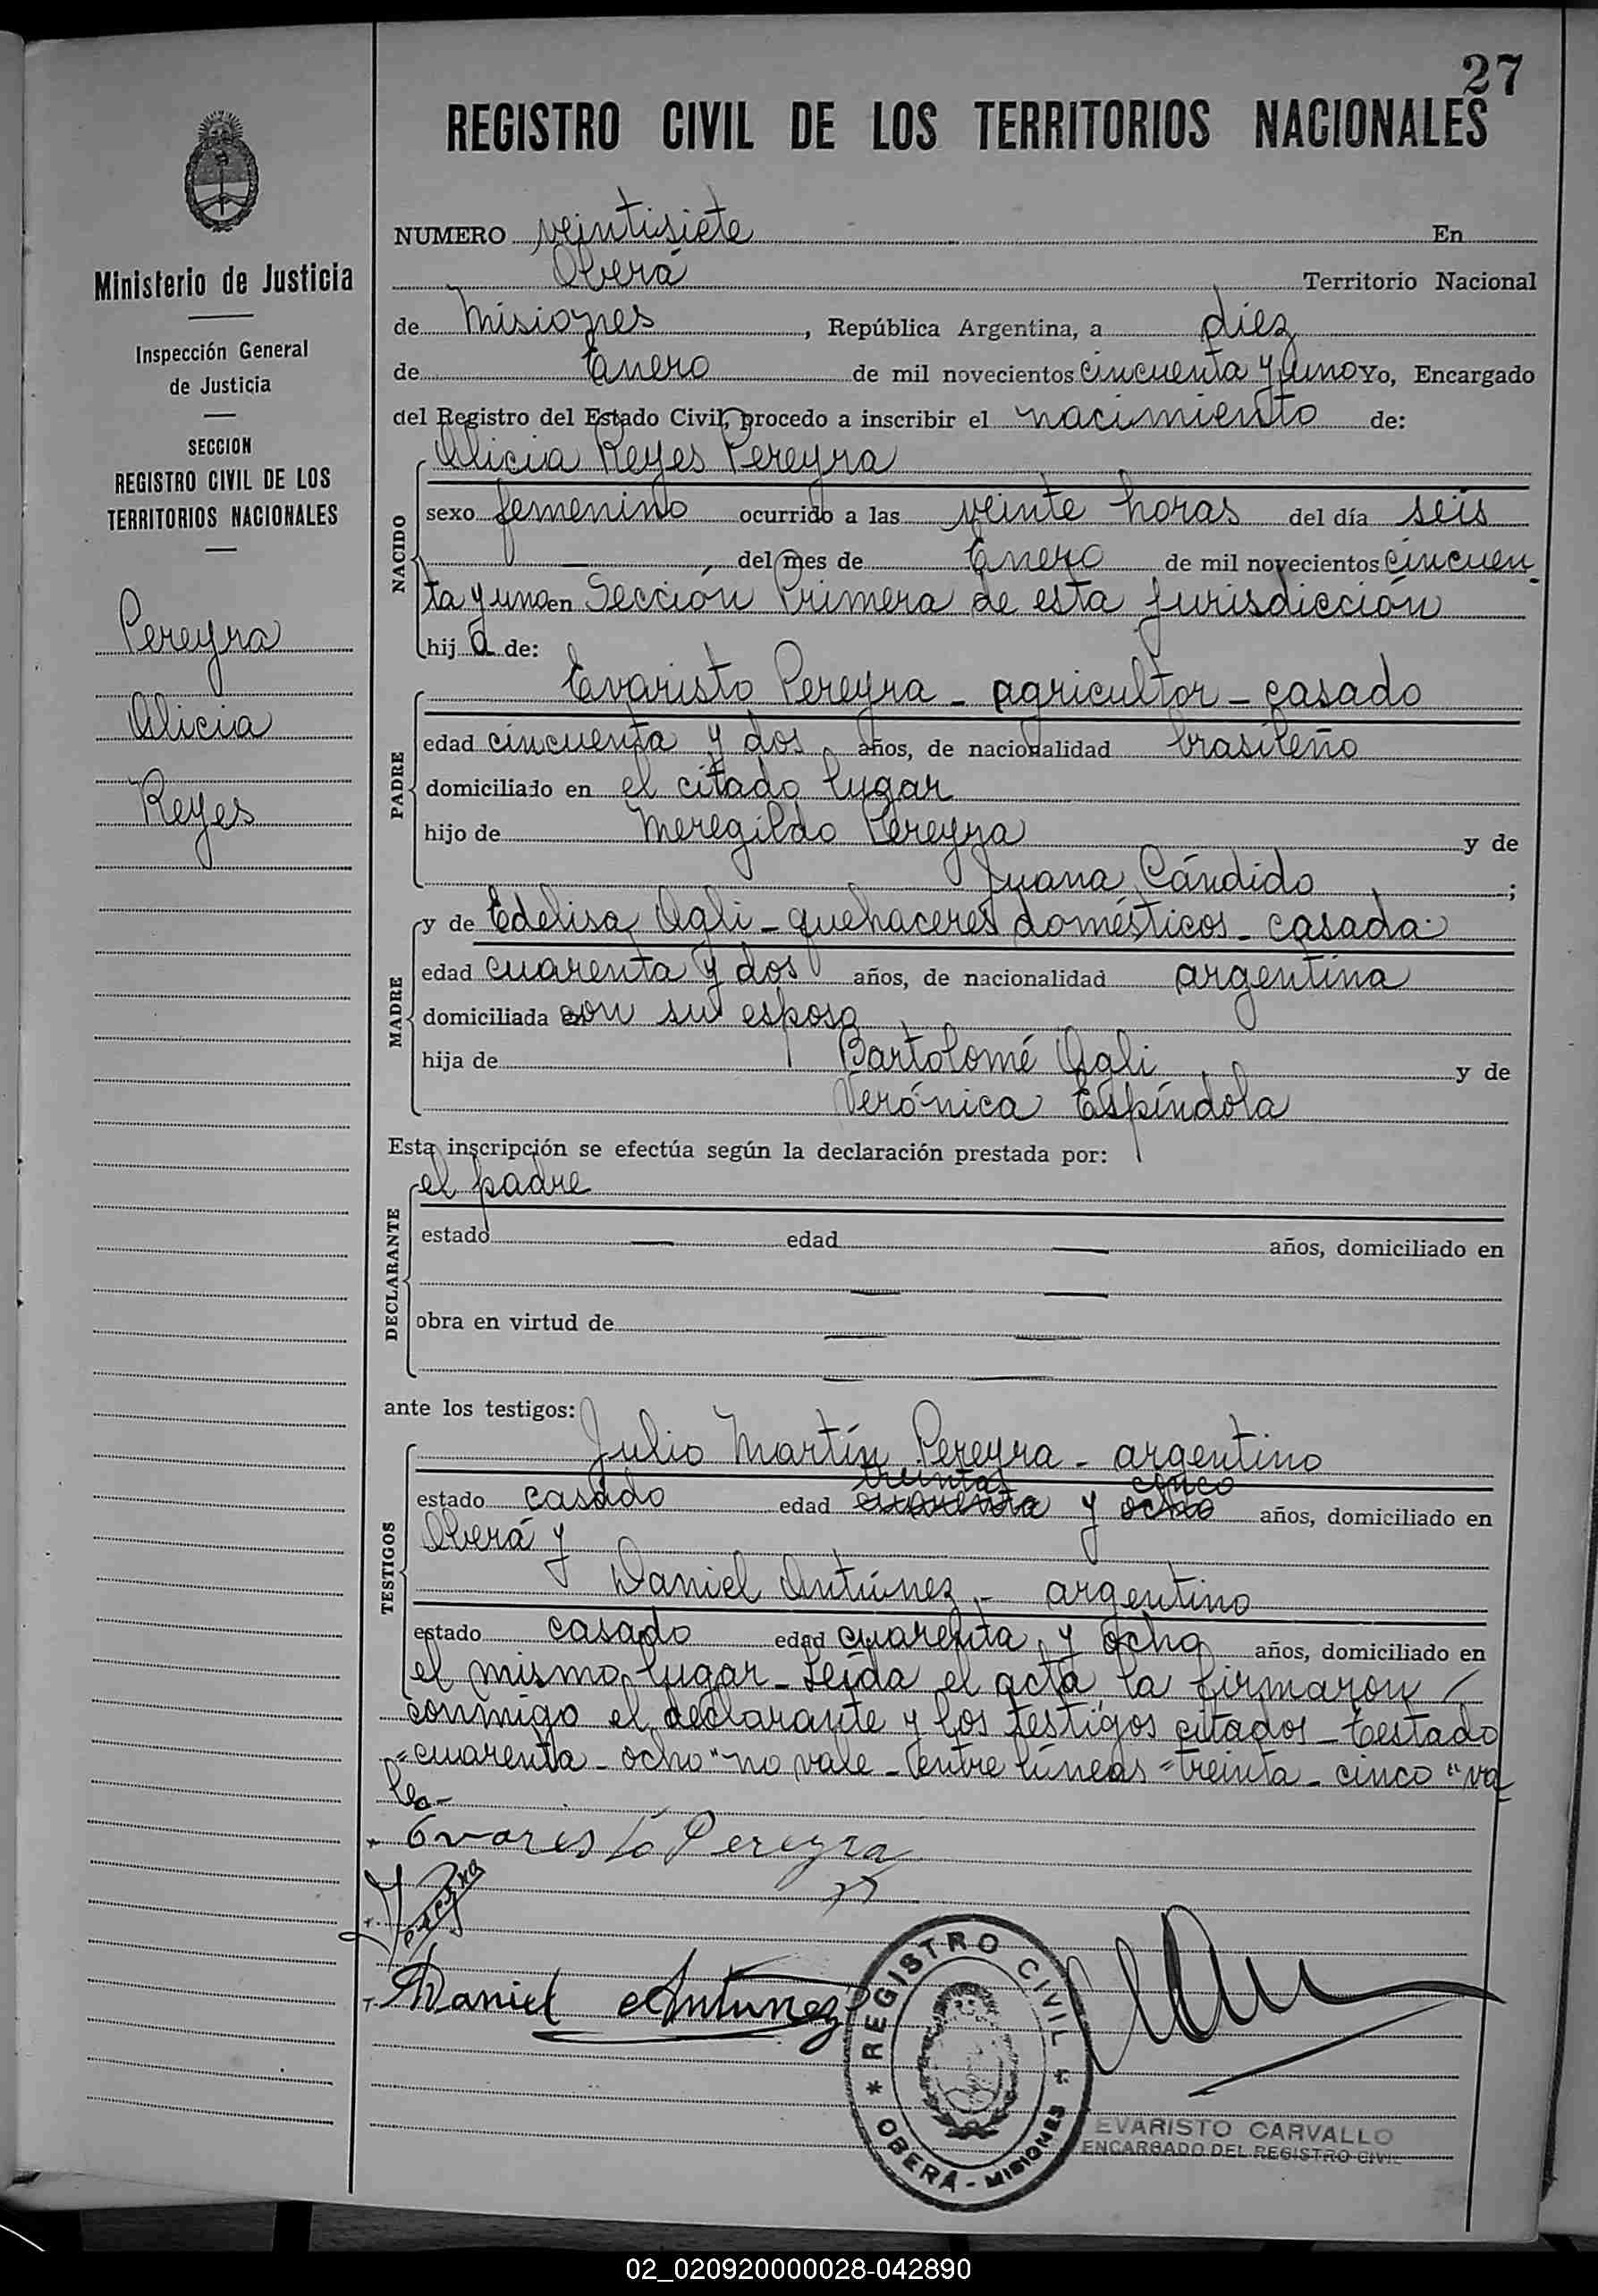 27
REGISTRO CIVIL DE LOS TERRITORIOS NACIONALES
Ministerio de Justicia
Inspección General
de Justicia
SECCION
REGISTRO CIVIL DE LOS
TERRITORIOS NACIONALES
Pereyra
Alicia
Reyes
NUMERO veintisiete En
Oberá Territorio Nacional
de Misiones, República Argentina, a diez
de Enero de mil novecientos cincuenta y uno Yo, Encargado
del Registro del Estado Civil, procedo a inscribir el nacimiento de:
Alicia Reyes Pereyra
NACIDO
sexo femenino ocurrido a las veinte horas del día seis
del mes de Enero de mil novecientos cincuen
ta y uno en Sección Primera de esta jurisdicción
hij a de:
PADRE
Evaristo Pereyra - agricultor - casado
edad cincuenta y dos años, de nacionalidad brasileño
domiciliado en el citado lugar
hijo de Meregildo Pereyra y de
Juana Cándido ;
MADRE
y de Edelisa Ogli - quehaceres domésticos - casada
edad cuarenta y dos años, de nacionalidad argentina
domiciliada con su esposo
hija de Bartolomé Ogli y de
Verónica Espíndola
Esta inscripción se efectúa según la declaración prestada por:
DECLARANTE
el padre
estado — edad — años, domiciliado en
— —
obra en virtud de — —
— —
ante los testigos:
TESTIGOS
Julio Martín Pereyra - argentino
treinta cinco
estado casado edad cuarenta y ocho años, domiciliado en
Oberá y
Daniel Antúnez - argentino
estado casado edad cuarenta y ocho años, domiciliado en
el mismo lugar - Leída el acta, la firmaron /
conmigo el declarante y los testigos citados - Testado
"cuarenta - ocho" no vale - Entre líneas "treinta - cinco" va
le -
Evaristo Pereyra
J Pereyra
Daniel Antunez
REGISTRO CIVIL
OBERÁ - MISIONES
EVARISTO CARVALLO
ENCARGADO DEL REGISTRO CIVIL
02_020920000028-042890